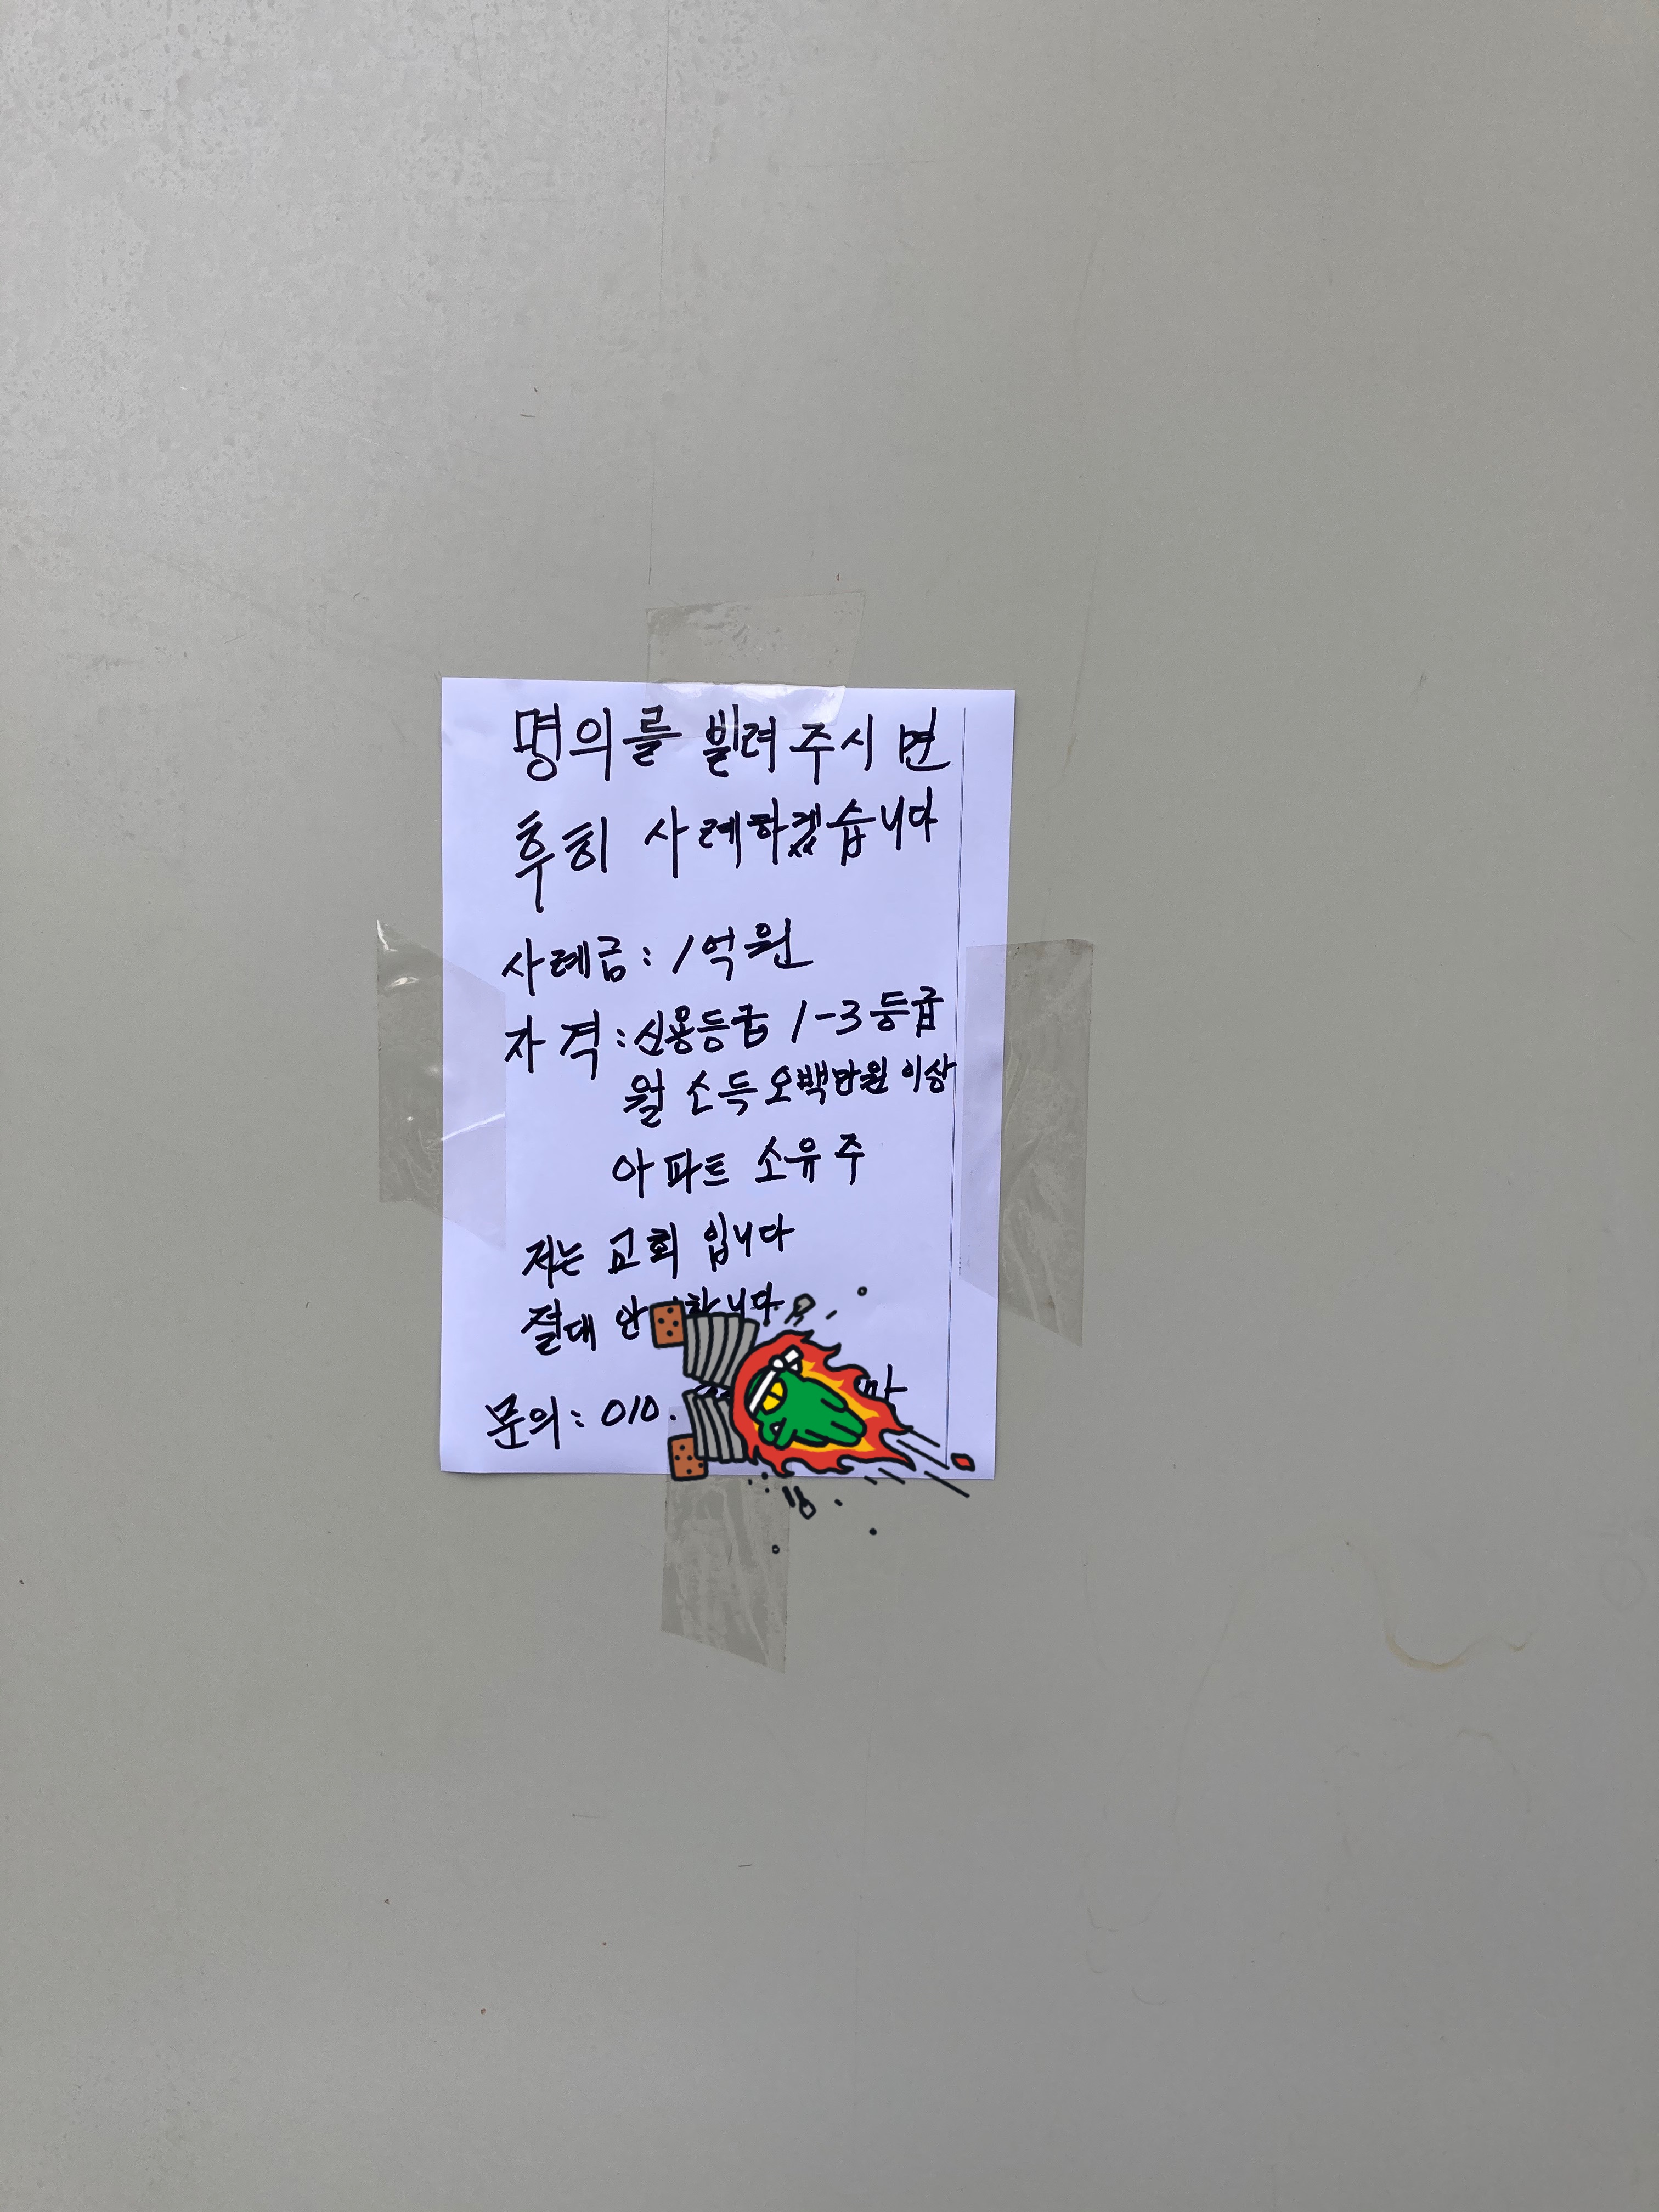 명의를 빌려 주시면
후히 사례하겠습니다
사례금: 1억원
자격: 신용등급 1-3등급
월 소득 오백만원 이상
아파트 소유주
저는 교회 입니다
절대 안
문의: 010.